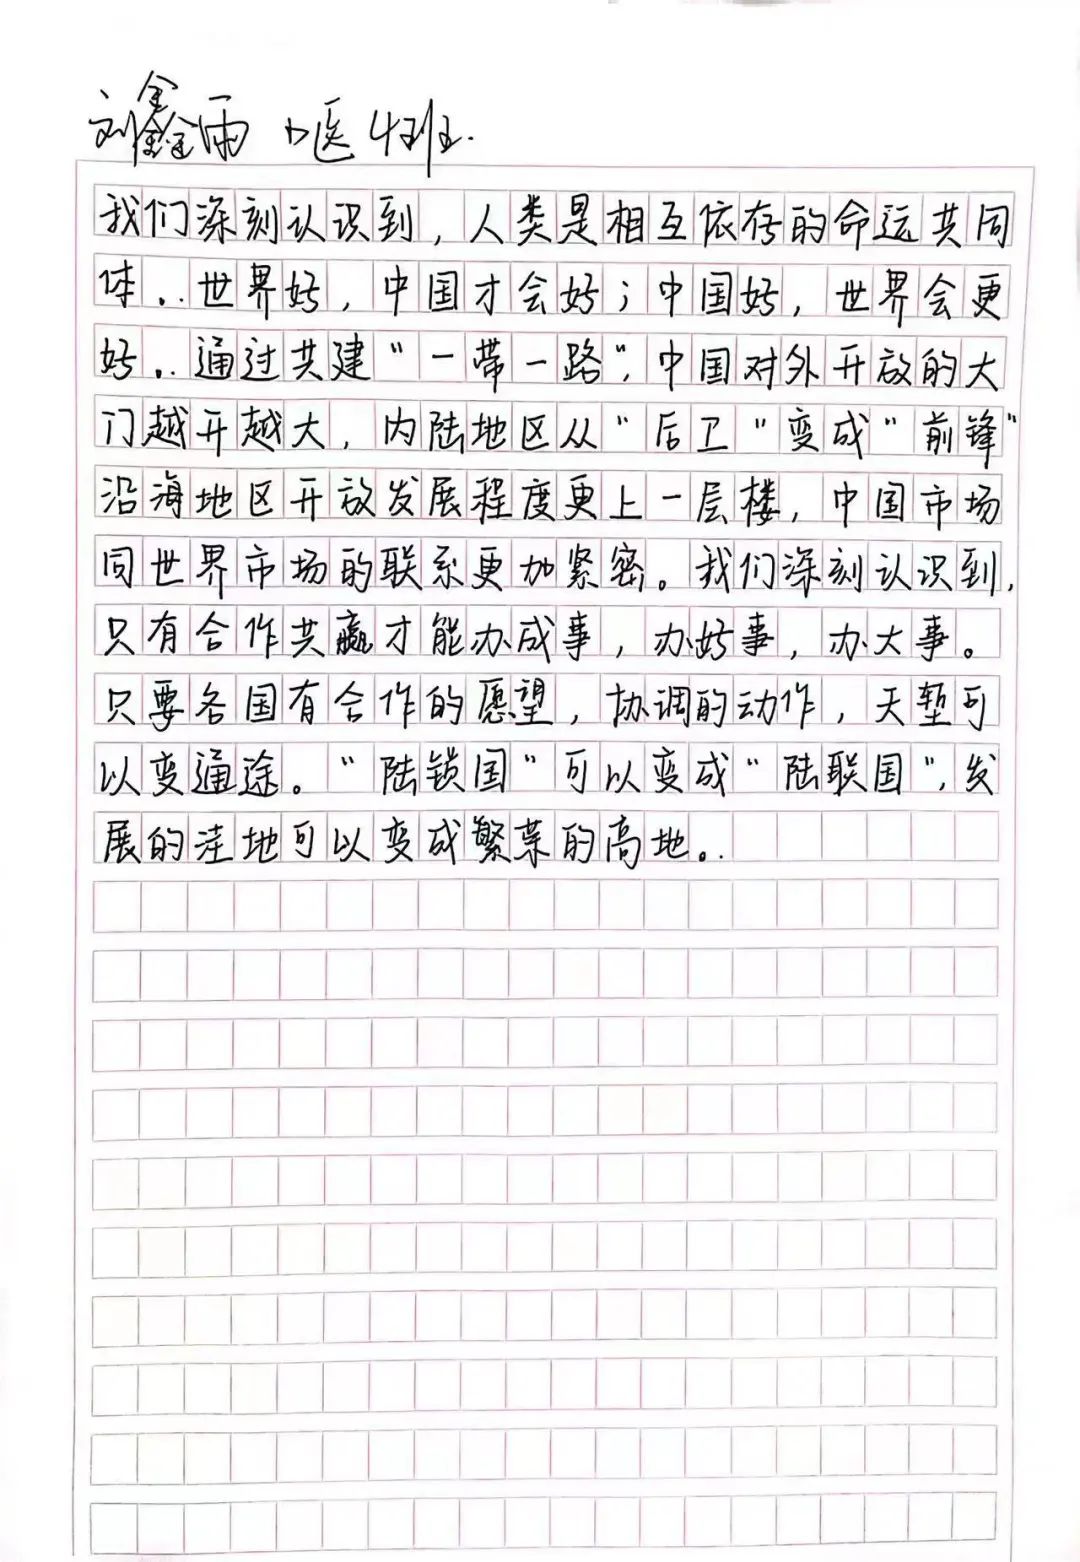 刘鑫雨 口医4班.
我们深刻认识到，人类是相互依存的命运共同
体。.世界好，中国才会好；中国好，世界会更
好。.通过共建“一带一路”，中国对外开放的大
门越开越大，内陆地区从“后卫”变成“前锋”
沿海地区开放发展程度更上一层楼，中国市场
同世界市场的联系更加紧密。我们深刻认识到，
只有合作共赢才能办成事，办好事，办大事。
只要各国有合作的愿望，协调的动作，天堑可
以变通途。“陆锁国”可以变成“陆联国”，发
展的洼地可以变成繁荣的高地。.